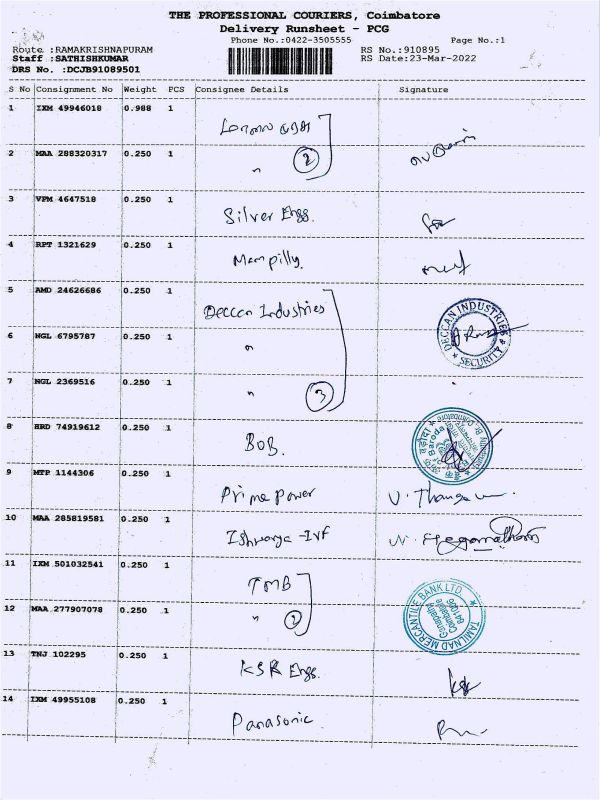 THE PROFESSIONAL COURIERS, Coimbatore
Delivery Runsheet - PCG
Phone No.:0422-3505555
Page No.:1
Route :RAMAKRISHNAPURAM
RS No.:910895
Staff :SATHISHKUMAR
RS Date:23-Mar-2022
DRS No. :DCJB91089501
S No Consignment No Weight PCS Consignee Details Signature
1 IXM 49946018 0.988 1
2 MAA 288320317 0.250 1 " 2
3 VPM 4647518 0.250 1 Silver Engg.
4 RPT 1321629 0.250 1 Mampilly
5 AMD 24626686 0.250 1 Deccan Industries
DECCAN INDUSTRIES
SECURITY
6 NGL 6795787 0.250 1 "
7 NGL 2369516 0.250 1 " 3
8 HRD 74919612 0.250 1 BOB.
9 MTP 1144306 0.250 1 Prime power
10 MAA 285819581 0.250 1 Ishwarya -Ivf
11 IXM 501032541 0.250 1 TMB
TAMILNAD MERCANTILE BANK LTD.
Ganapathy
Coimbatore
641006
12 MAA 277907078 0.250 1 " 2
13 TNJ 102295 0.250 1 KSR Engg.
14 IXM 49955108 0.250 1 Panasonic